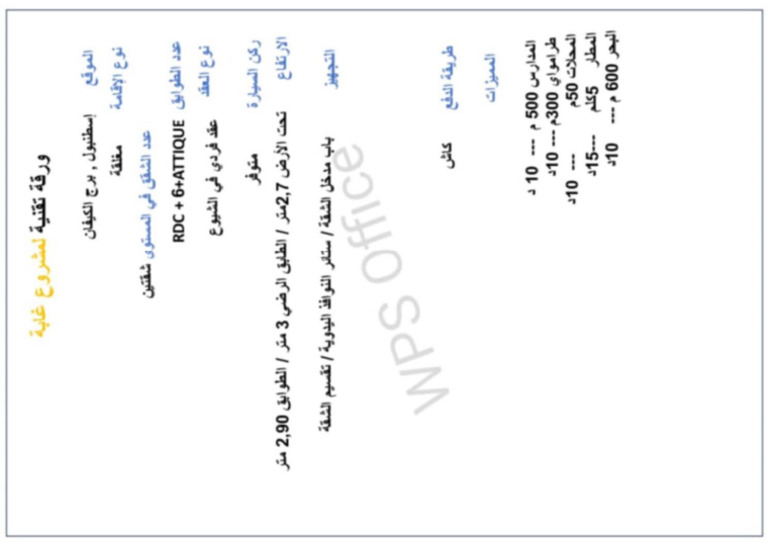 ورقة تقنية لمشروع غابة
الموقع إسطنبول , برج الكيفان
نوع الإقامة مغلقة
عدد الشقق في المستوى شقتين
عدد الطوابق RDC + 6+ATTIQUE
نوع العقد عقد فردي في الشيوع
ركن السيارة متوفر
الارتفاع تحت الأرض 2,7متر / الطابق الرضي 3 متر / الطوابق 2,90 متر
التجهيز باب مدخل الشقة / ستائر النوافذ اليدوية / تقسيم الشقة
WPS Office
طريقة الدفع كاش
المميزات
المدارس 500 م --- 10 د
طرامواي 300م --- 10د
المحلات 50م --- 10د
المطار 5كلم ---15د
البحر 600 م --- 10د